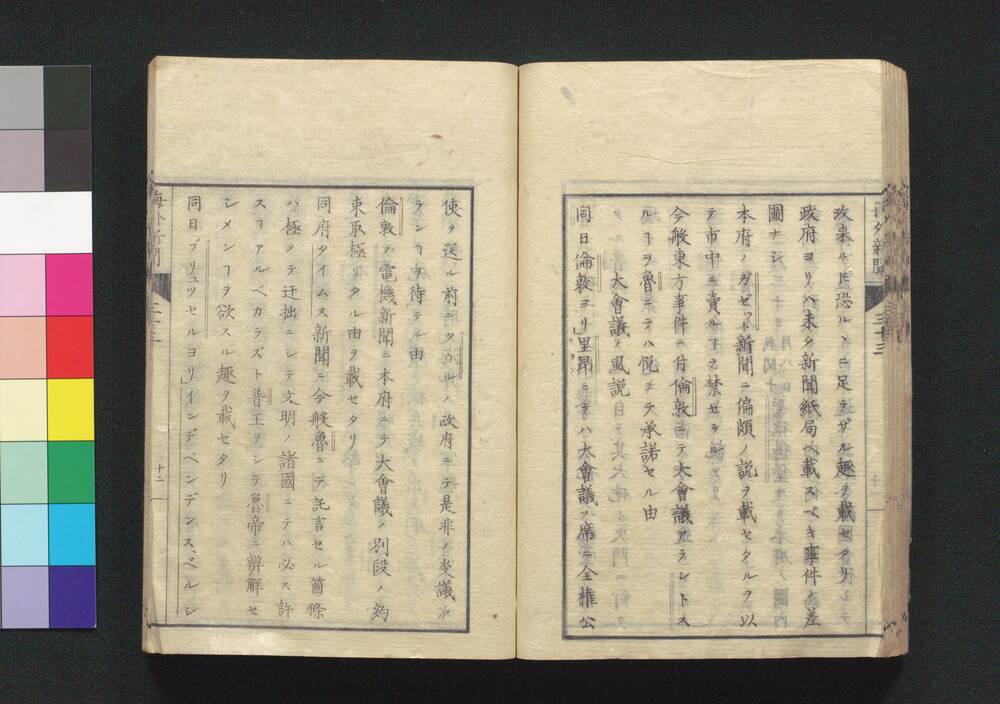 海外新聞
三十三
政来ルトモ恐ルヽニ足ラザル趣ヲ載セタリ
政府ヨリハ未タ新聞紙局ヘ載スベキ事件ノ差
圖ナシ
本府ノガゼット新聞ニ偏頗ノ説ヲ載セタルヲ以
テ市中ニ賣ルヿヲ禁ゼラル
今般東方事件ニ付倫敦ニテ大會議アラントス
ルヿヲ魯ニテハ悦ヒテ承諾セル由
大會議ノ風説
同日倫敦ヨリ」里昂ニテハ大會議ノ席ニ全権公
使ヲ送ル前ニタウルハ政府ニテ是非ノ変議
ランヿヲ待テル由
倫敦ノ電機新聞ニ本府ニテ大會議ノ別段ノ約
束取極リタル由ヲ載セタリ
同府タイムス新聞ニ今般魯ニテ託言セル箇條
ハ極メテ迂拙ニシテ文明ノ諸國ニテハ必ス許
スヿアルベカラズト普王ヲシテ魯帝ニ辨解セ
シメンヿヲ欲スル趣ヲ載セタリ
同日ブリュッセルヨリ」インデペンデンス、ベルシ
海外新聞
十二